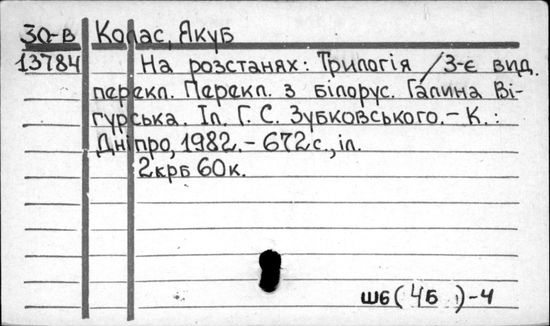 30-В Колас, Якуб
13784 На розстанях: Трилогія / 3-є вид.
перекл. Перекл. з білорус. Галина Ві-
гурська. Іл. Г. С. Зубковського. – К.:
Дніпро, 1982. – 672 с., іл.
2 крб 60 к.
Ш6(4Б)-4